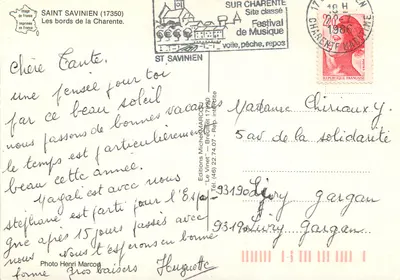 SAINT SAVINIEN (17350)
Les bords de la Charente.
SUR CHARENTE
Site classé
Festival
de Musique
voile, pêche, repos
ST SAVINIEN
CHARENTE MARITIME
Chère Tante.
une pensée pour toi
par ce beau soleil
nous passons de bonnes vacances
le temps est particulièrement
beau cette année.
Magali est avec nous
stéphane est parti pour l'Espa-
gne après 15 jours passés avec
nous. Nous t'espérons en bonne
forme gros baisers Huguette
Photo Henri Marcou
Madame Chiriaux y.
5 av de la solidarité
93190 Livry gargan
93190 Livry Gargan.